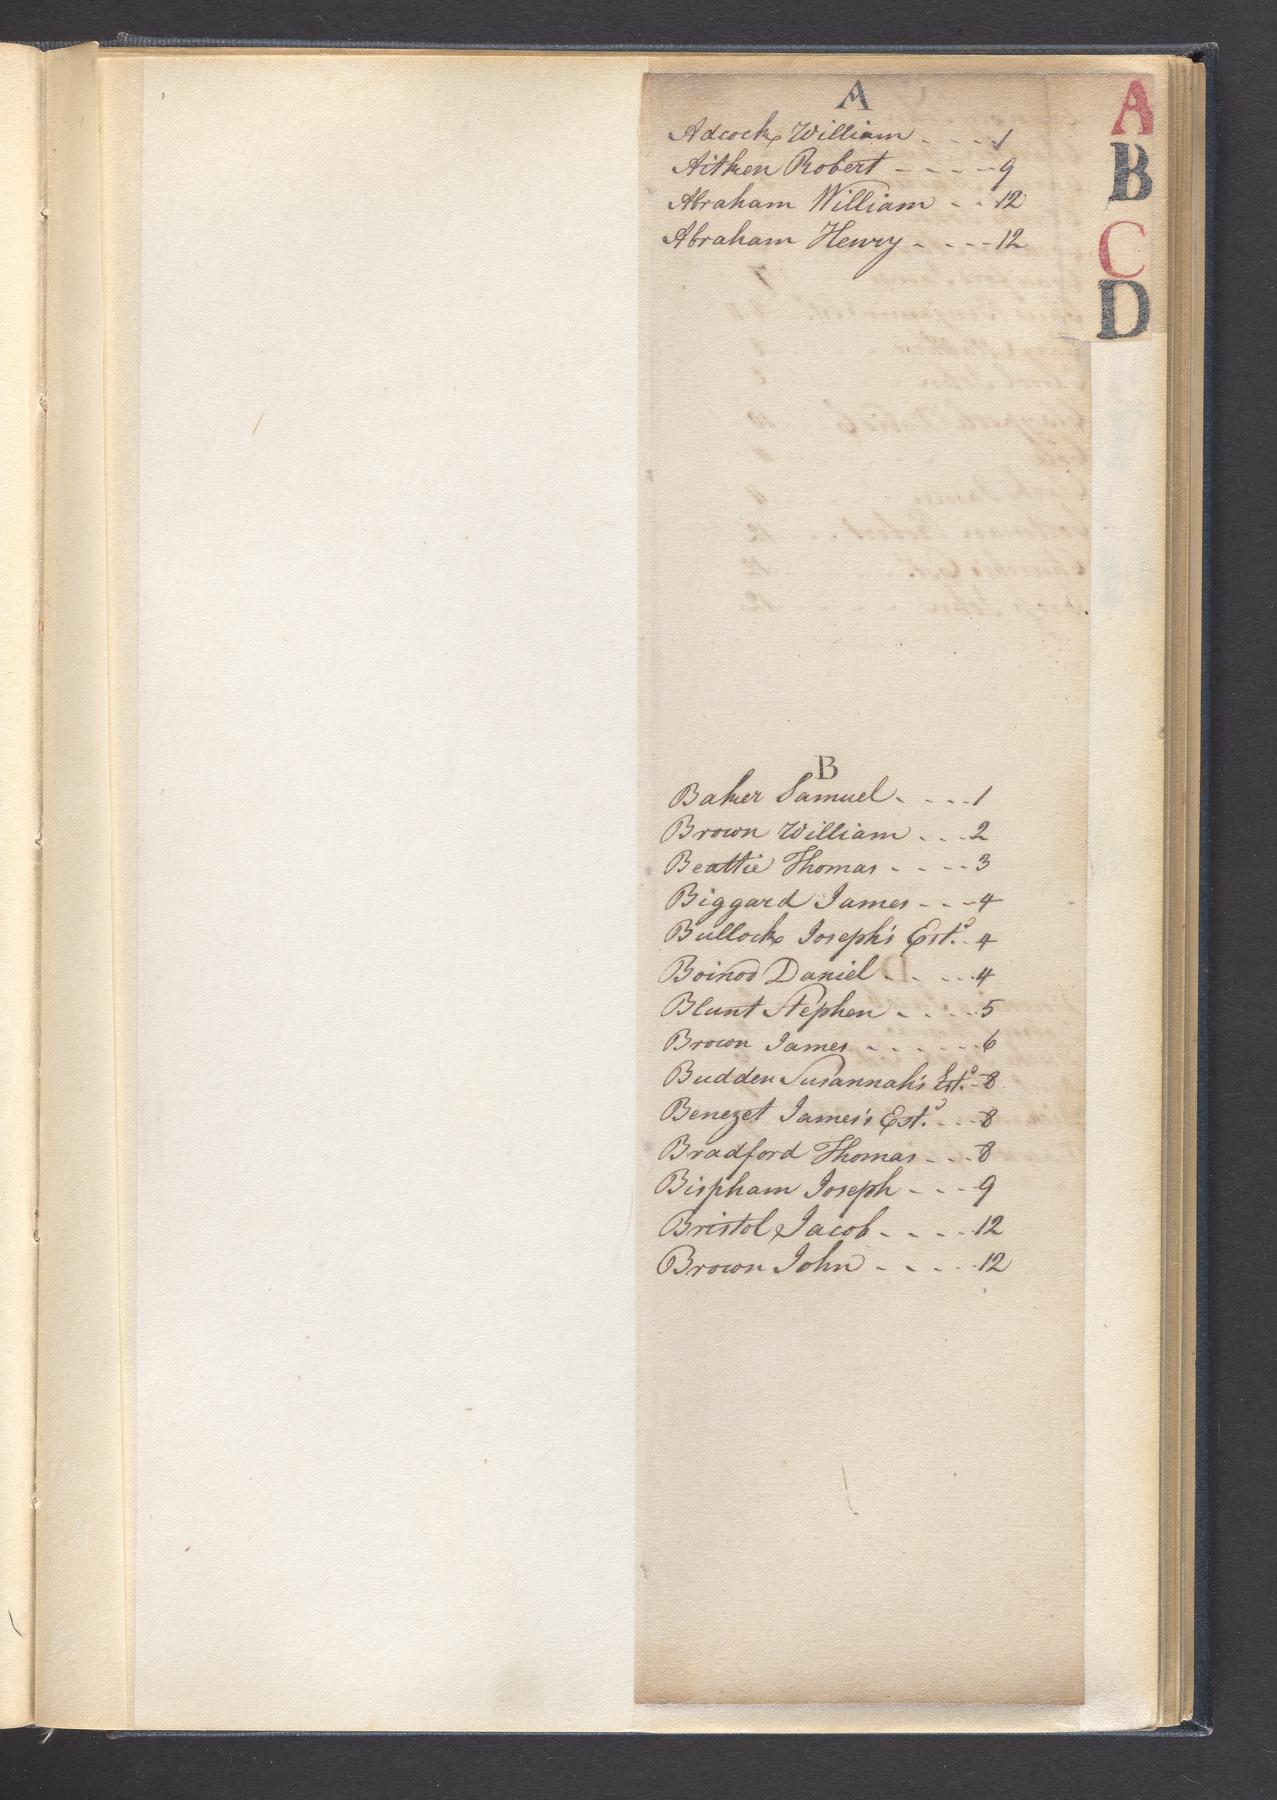 A
Adcock William - - - - 1
Aitken Robert - - - - - 9
Abraham William - - - 12
Abraham Henry - - - - - 12
A
B
C
D
B
Baker Samuel - - - - 1
Brown William - - - 2
Beattie Thomas - - - - - 3
Biggard James - - - 4
Bullock Joseph's Est.ᵈ - 4
Boinod Daniel - - - - - 4
Blunt Stephen - - - - - 5
Brown James - - - - - - 6
Budden Susannah's Est.ᵈ - 8
Benezet James's Est.ᵈ - - - 8
Bradford Thomas - - - 8
Bispham Joseph - - - 9
Bristol Jacob - - - - - 12
Brown John - - - - - 12